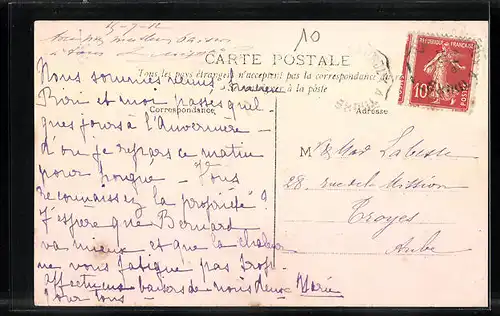 15-9-12
10
CARTE POSTALE
Tous les pays étrangers n'acceptent pas la correspondance au
à la poste
Correspondance
Adresse
RÉPUBLIQUE FRANÇAISE
10
POSTES
Nous sommes venus,
et moi passer quel-
ques jours à l'Auvernier -
d'où je repars ce matin
pour Pougue - Vous
reconnaissez la propriété ?
J'espère que Bernard
va mieux et que la chaleur
ne vous fatigue pas trop.
Affectueux baisers de nous deux Marie
Pour tous
M Mad Labesse
28, rue de la Mission
Troyes
Aube